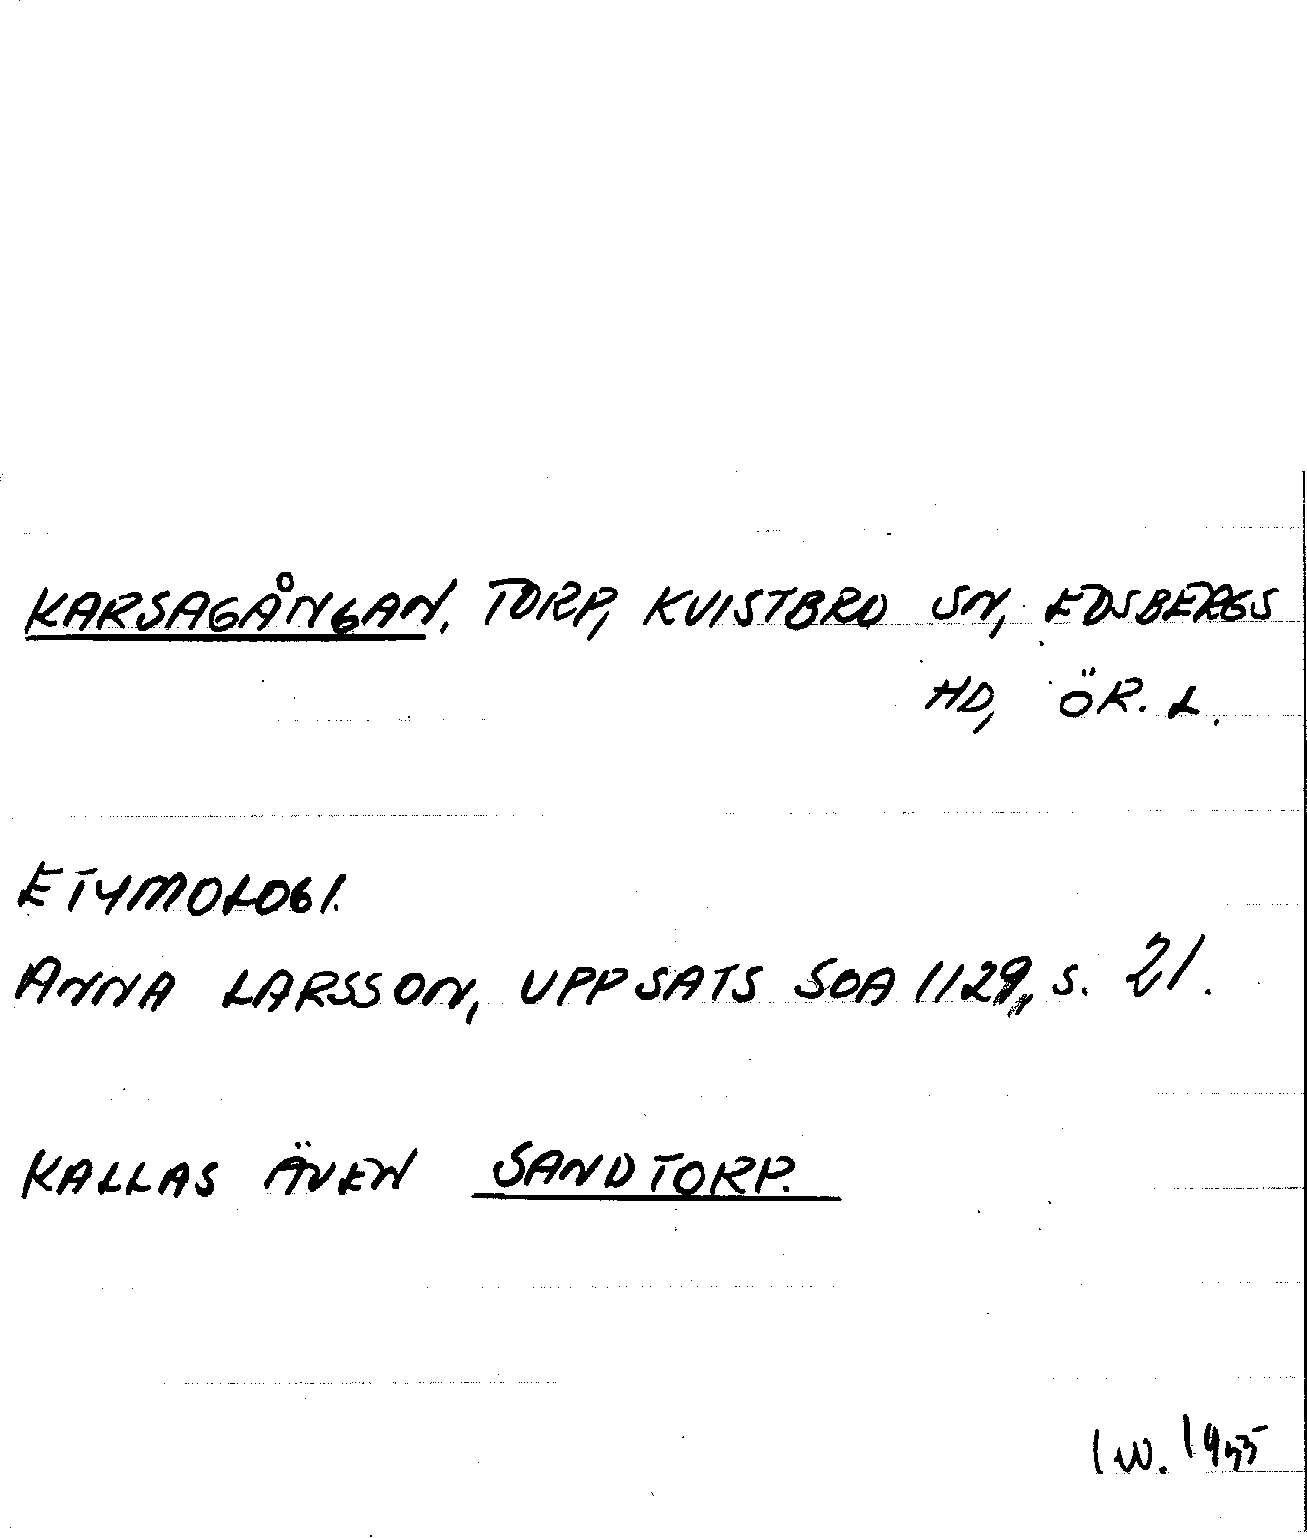 KARSAGÅNGAN, TORP, KVISTBRO SN, EDSBERGS
HD, ÖR. L.
ETYMOLOGI.
ANNA LARSSON, UPPSATS SOA 1129, S. 21.
KALLAS ÄVEN SANDTORP.
IW.